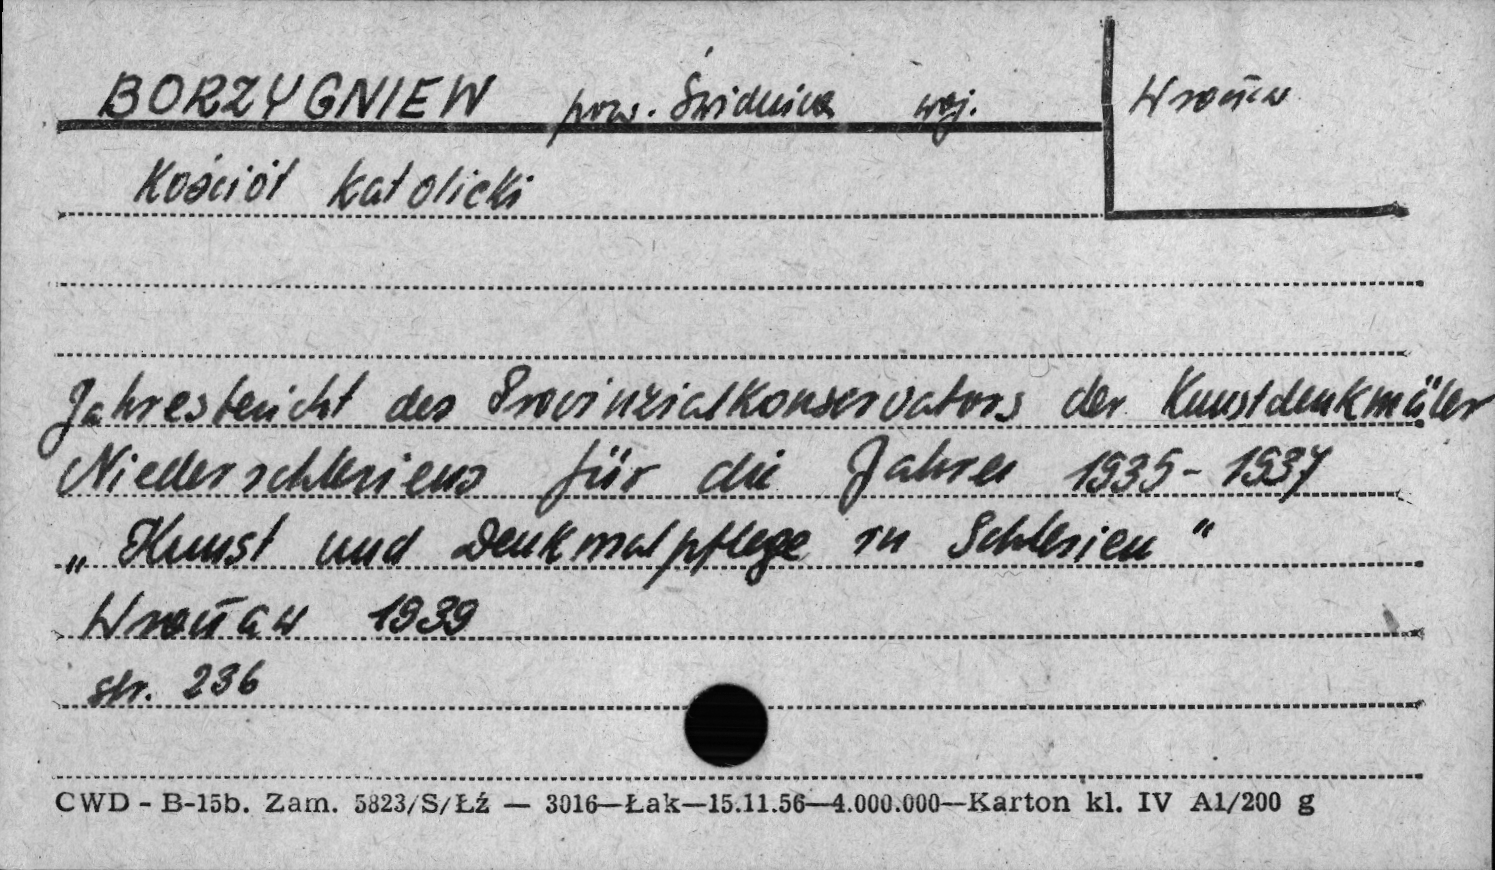 BORZYGNIEW pow. Świdnica woj. Wrocław
Kościół katolicki
Jahresbericht des Provinzialkonservators der Kunstdenkmäler
Niederschlesiens für die Jahre 1935-1937
„Kunst und Denkmalpflege in Schlesien"
Wrocław 1939
str. 236
CWD - B-15b. Zam. 5823/S/Łź — 3016—Łak—15.11.56—4.000.000—Karton kl. IV A1/200 g